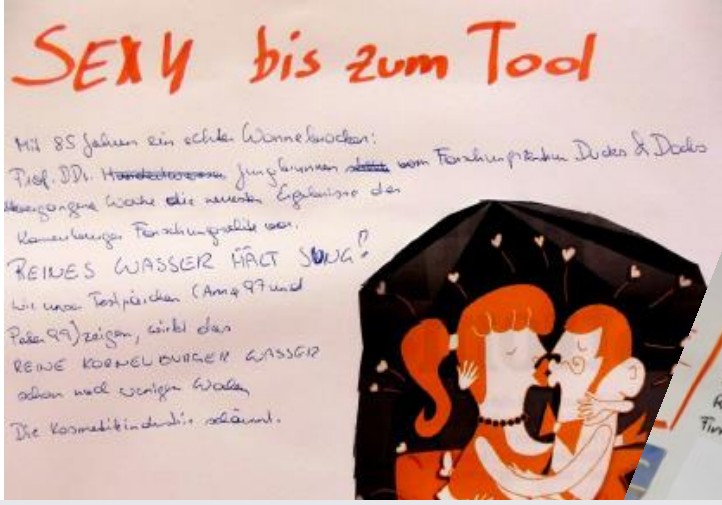 SEXY bis zum Tod
Mit 85 Jahren ein echter Wonnebrocken:
Prof. DDr. Jungbrunnen vom Forschungszentrum Ducks & Docks
vergangene Woche die neuesten Ergebnisse der
Forschungsreihe vor.
REINES WASSER HÄLT JUNG!
Wie unser Testpärchen (Anna 97 und
Peter 99) zeigen, wirkt das
REINE KORNEUBURGER WASSER
schon nach wenigen Wochen
Die Kosmetikindustrie schäumt.